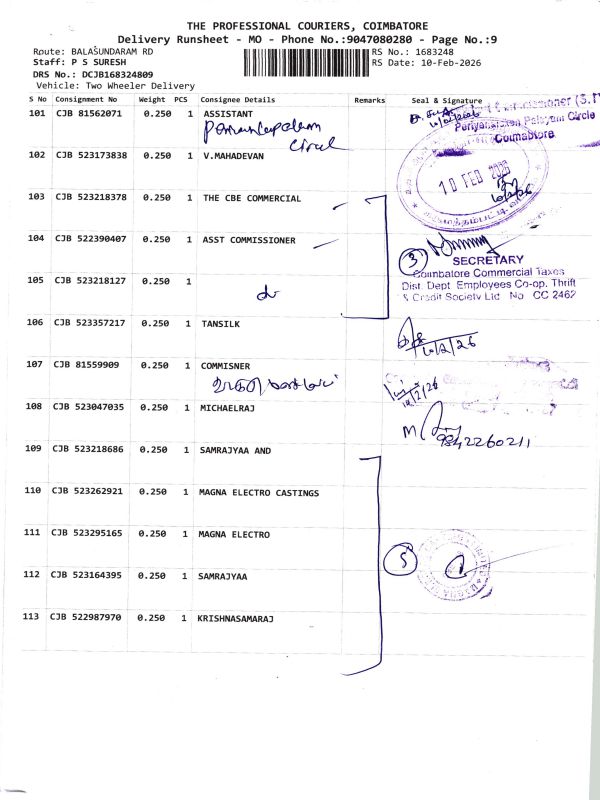 THE PROFESSIONAL COURIERS, COIMBATORE
Delivery Runsheet - MO - Phone No.:9047080280 - Page No.:9
Route: BALASUNDARAM RD
RS No.: 1683248
Staff: P S SURESH
RS Date: 10-Feb-2026
DRS No.: DCJB168324809
Vehicle: Two Wheeler Delivery
S No Consignment No Weight PCS Consignee Details Remarks Seal & Signature
101 CJB 81562071 0.250 1 ASSISTANT
Circle
Coimbatore
102 CJB 523173838 0.250 1 V.MAHADEVAN
10 FEB 2026
103 CJB 523218378 0.250 1 THE CBE COMMERCIAL
104 CJB 522390407 0.250 1 ASST COMMISSIONER
3
SECRETARY
Coimbatore Commercial Taxes
105 CJB 523218127 0.250 1
Dist. Dept. Employees Co-op. Thrift
& Credit Society Ltd No CC 2462
106 CJB 523357217 0.250 1 TANSILK
10/2/26
107 CJB 81559909 0.250 1 COMMISNER
10/2/26
108 CJB 523047035 0.250 1 MICHAELRAJ
9842260211
109 CJB 523218686 0.250 1 SAMRAJYAA AND
110 CJB 523262921 0.250 1 MAGNA ELECTRO CASTINGS
111 CJB 523295165 0.250 1 MAGNA ELECTRO
5
112 CJB 523164395 0.250 1 SAMRAJYAA
113 CJB 522987970 0.250 1 KRISHNASAMARAJ